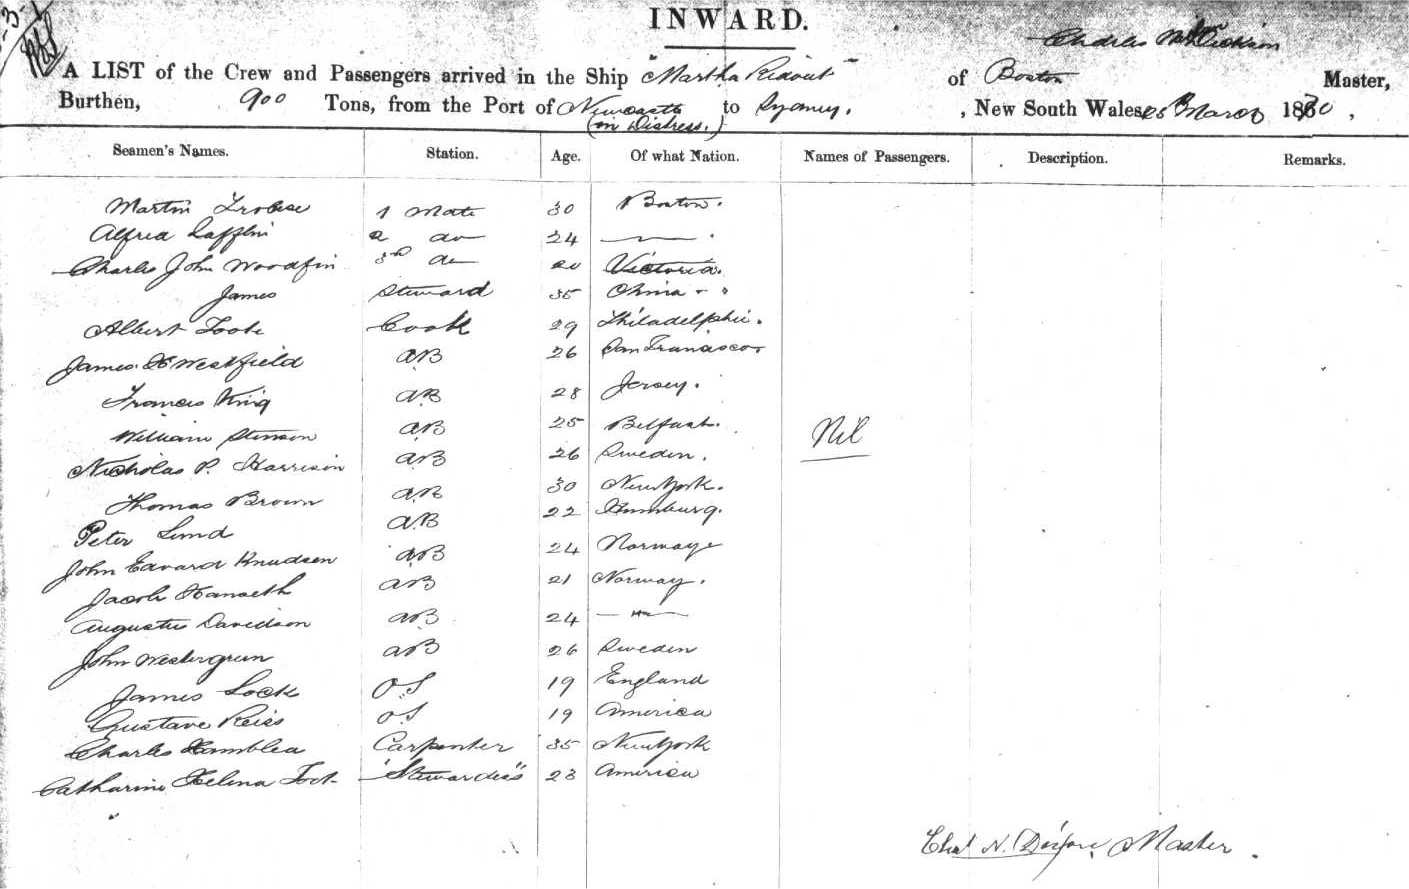 INWARD.
Charles Dickson
A LIST of the Crew and Passengers arrived in the Ship "Martha Rideout" of Boston Master,
Burthen, 900 Tons, from the Port of Newcastle to Sydney, , New South Wales, 25 March 1870,
(in Distress.)
Seamen's Names. Station. Age. Of what Nation. Names of Passengers. Description. Remarks.
Martin 1 Mate 30 Boston.
Alfred Lafflin 2 do 24 — .
Charles John Woodfin 3rd do 20 Victoria.
James Steward 35 China
Albert Toot Cook 29 Philadelphi.
James H Westfield AB 26 San Francisco
Francis King AB 28 Jersey.
William Stinson AB 25 Belfast.
Nil
Nicholas P. Harrison AB 26 Sweden.
Thomas Brown AB 30 New York.
Peter Lund AB 22 Hamburg.
John Edvard Knudsen AB 24 Norway
Jacob AB 21 Norway.
Augustus Davidson AB 24 —"—
John Westergreen AB 26 Sweden
James Lock O.S 19 England
Gustave Reiss O.S 19 America
Charles Carpenter 35 New York
Catharine Helena Toot "Stewardess" 23 America
Chas N. Master.